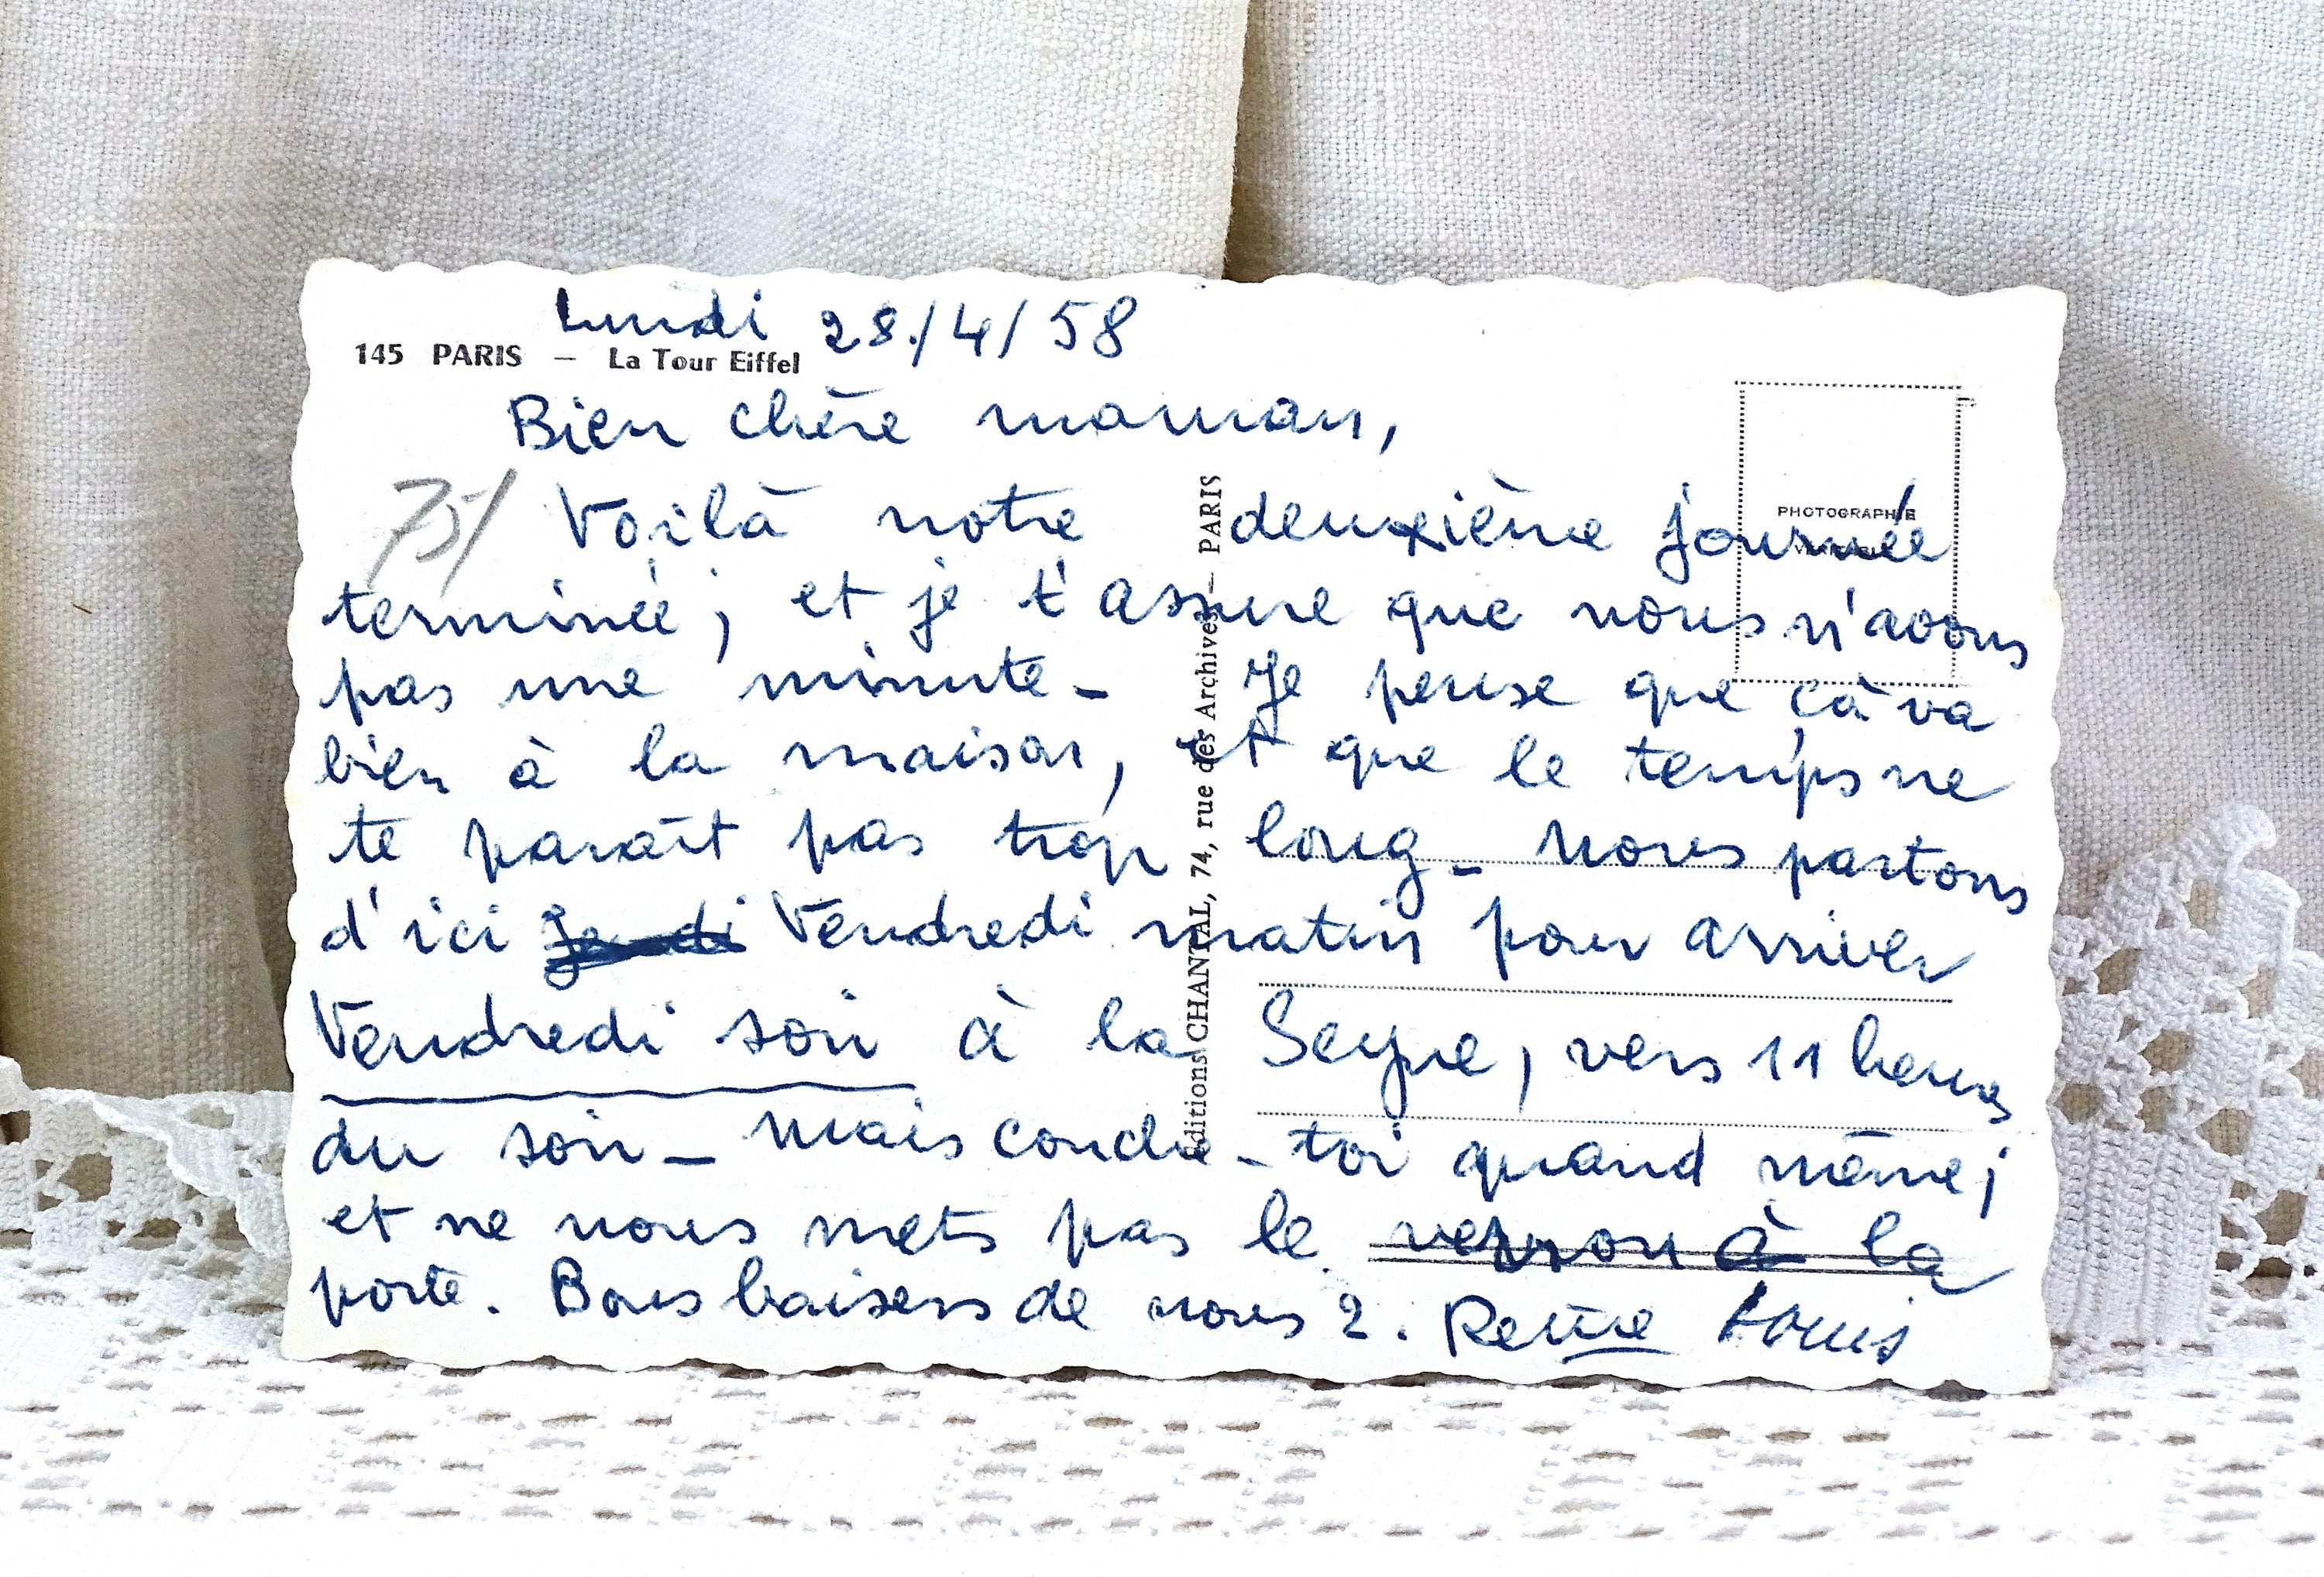 Lundi 28/4/58
145 PARIS — La Tour Eiffel
Bien chère maman,
75/
Voilà notre deuxième journée
terminée; et je t'assure que nous n'avons
pas une minute - Je pense que çà va
bien à la maison, et que le temps ne
te paraît pas trop long - Nous partons
d'ici Jeudi Vendredi matin pour arriver
Vendredi soir à la Seyne, vers 11 heures
du soir - Mais couche-toi quand même;
et ne nous mets pas le verrou à la
porte. Bons baisers de nous 2. Louis
Editions CHANTAL, 74, rue des Archives — PARIS
PHOTOGRAPHIE